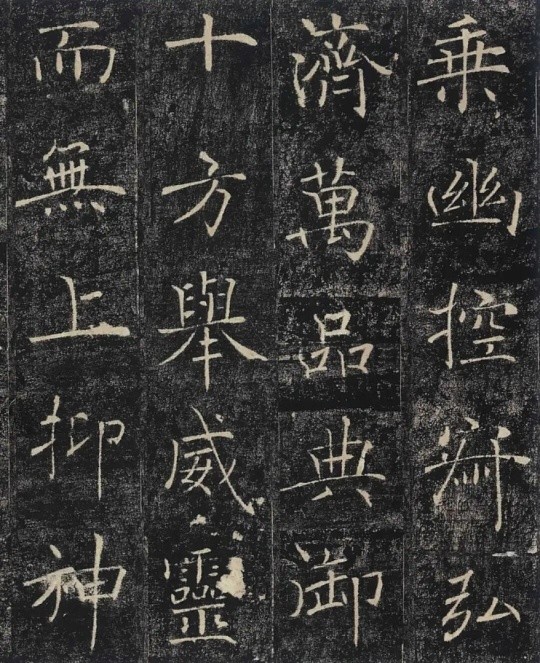 乘幽控寂弘
濟萬品典御
十方舉威靈
而無上抑神